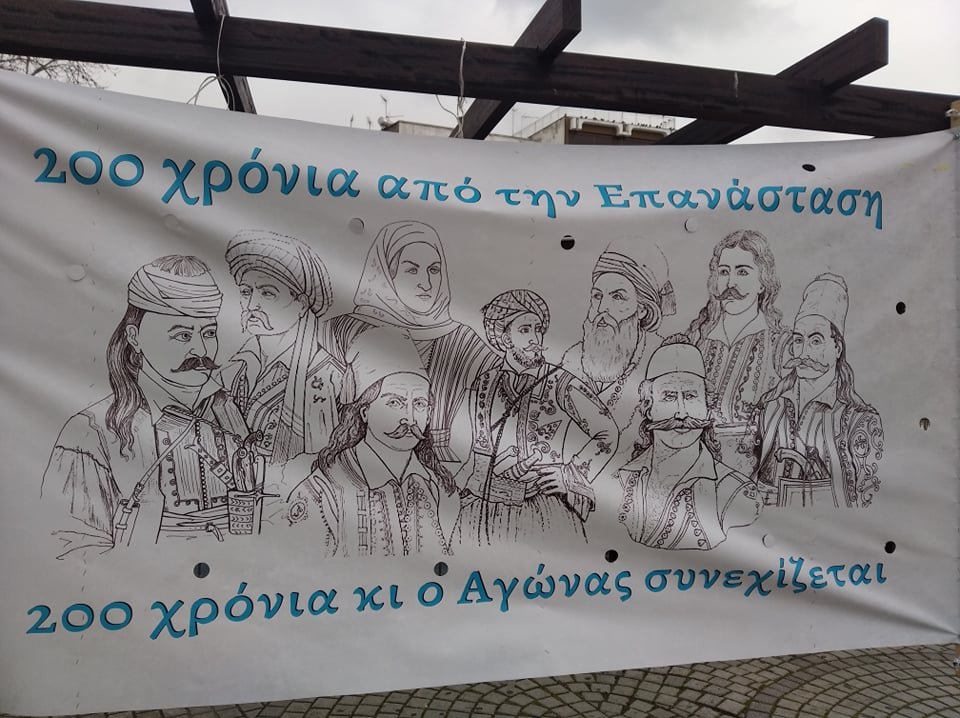 200 χρόνια από την Επανάσταση
200 χρόνια κι ο Αγώνας συνεχίζεται